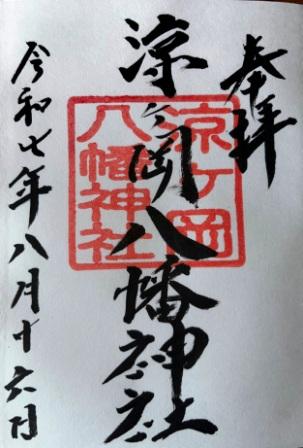 奉拝
涼ヶ岡八幡神社
涼ヶ岡
八幡神社
令和七年八月十六日